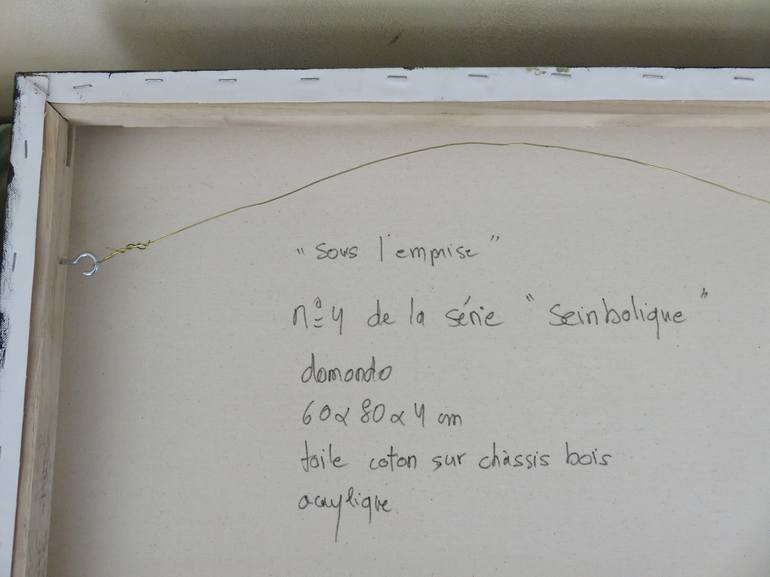 "sous l'emprise"
n° 4 de la série "seinbolique"
domondo
60 x 80 x 4 cm
toile coton sur châssis bois
acrylique